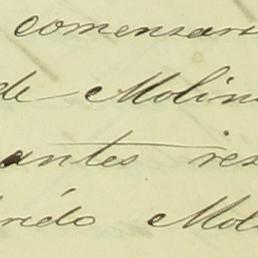 comensar
de Molin
antes res
rido Mol